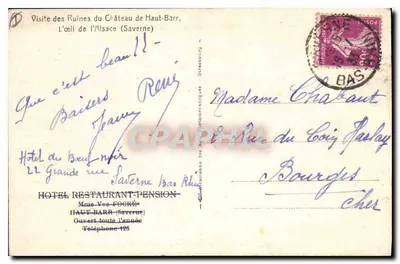 Visite des Ruines du Château de Haut-Barr,
L'œil de l'Alsace (Saverne)
Que c'est beau !!
Baisers
René
Jeanne
Hotel du Bœuf noir
22 Grande rue
Saverne Bas Rhin
HOTEL RESTAURANT-PENSION
Mme Vve FOCKÉ
HAUT-BARR (Saverne)
Ouvert toute l'année
Téléphone 125
BAS
Madame Chabaut
Rue du Coin Haslay
Bourges
Cher
CPAPHIL